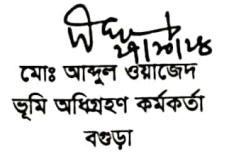 মোঃ আব্দুল ওয়াজেদ
ভূমি অধিগ্রহণ কর্মকর্তা
বগুড়া